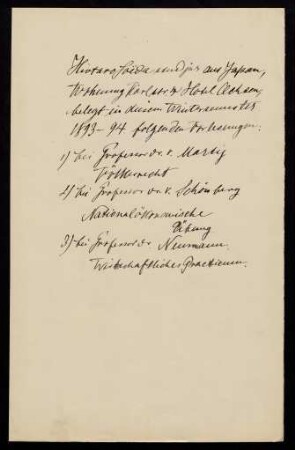 aus Japan,
Wohnung Hotel
belegt in diesem Wintersemester
1893-94 folgenden Vorlesungen:
1) bei Professor Dr. v. Martiz
Völkerrecht
2) bei Professor Dr. v. Schönberg
Nationalökonomische
Übung
3) bei Professor Dr Neumann.
Wirtschaftliches Practicum.